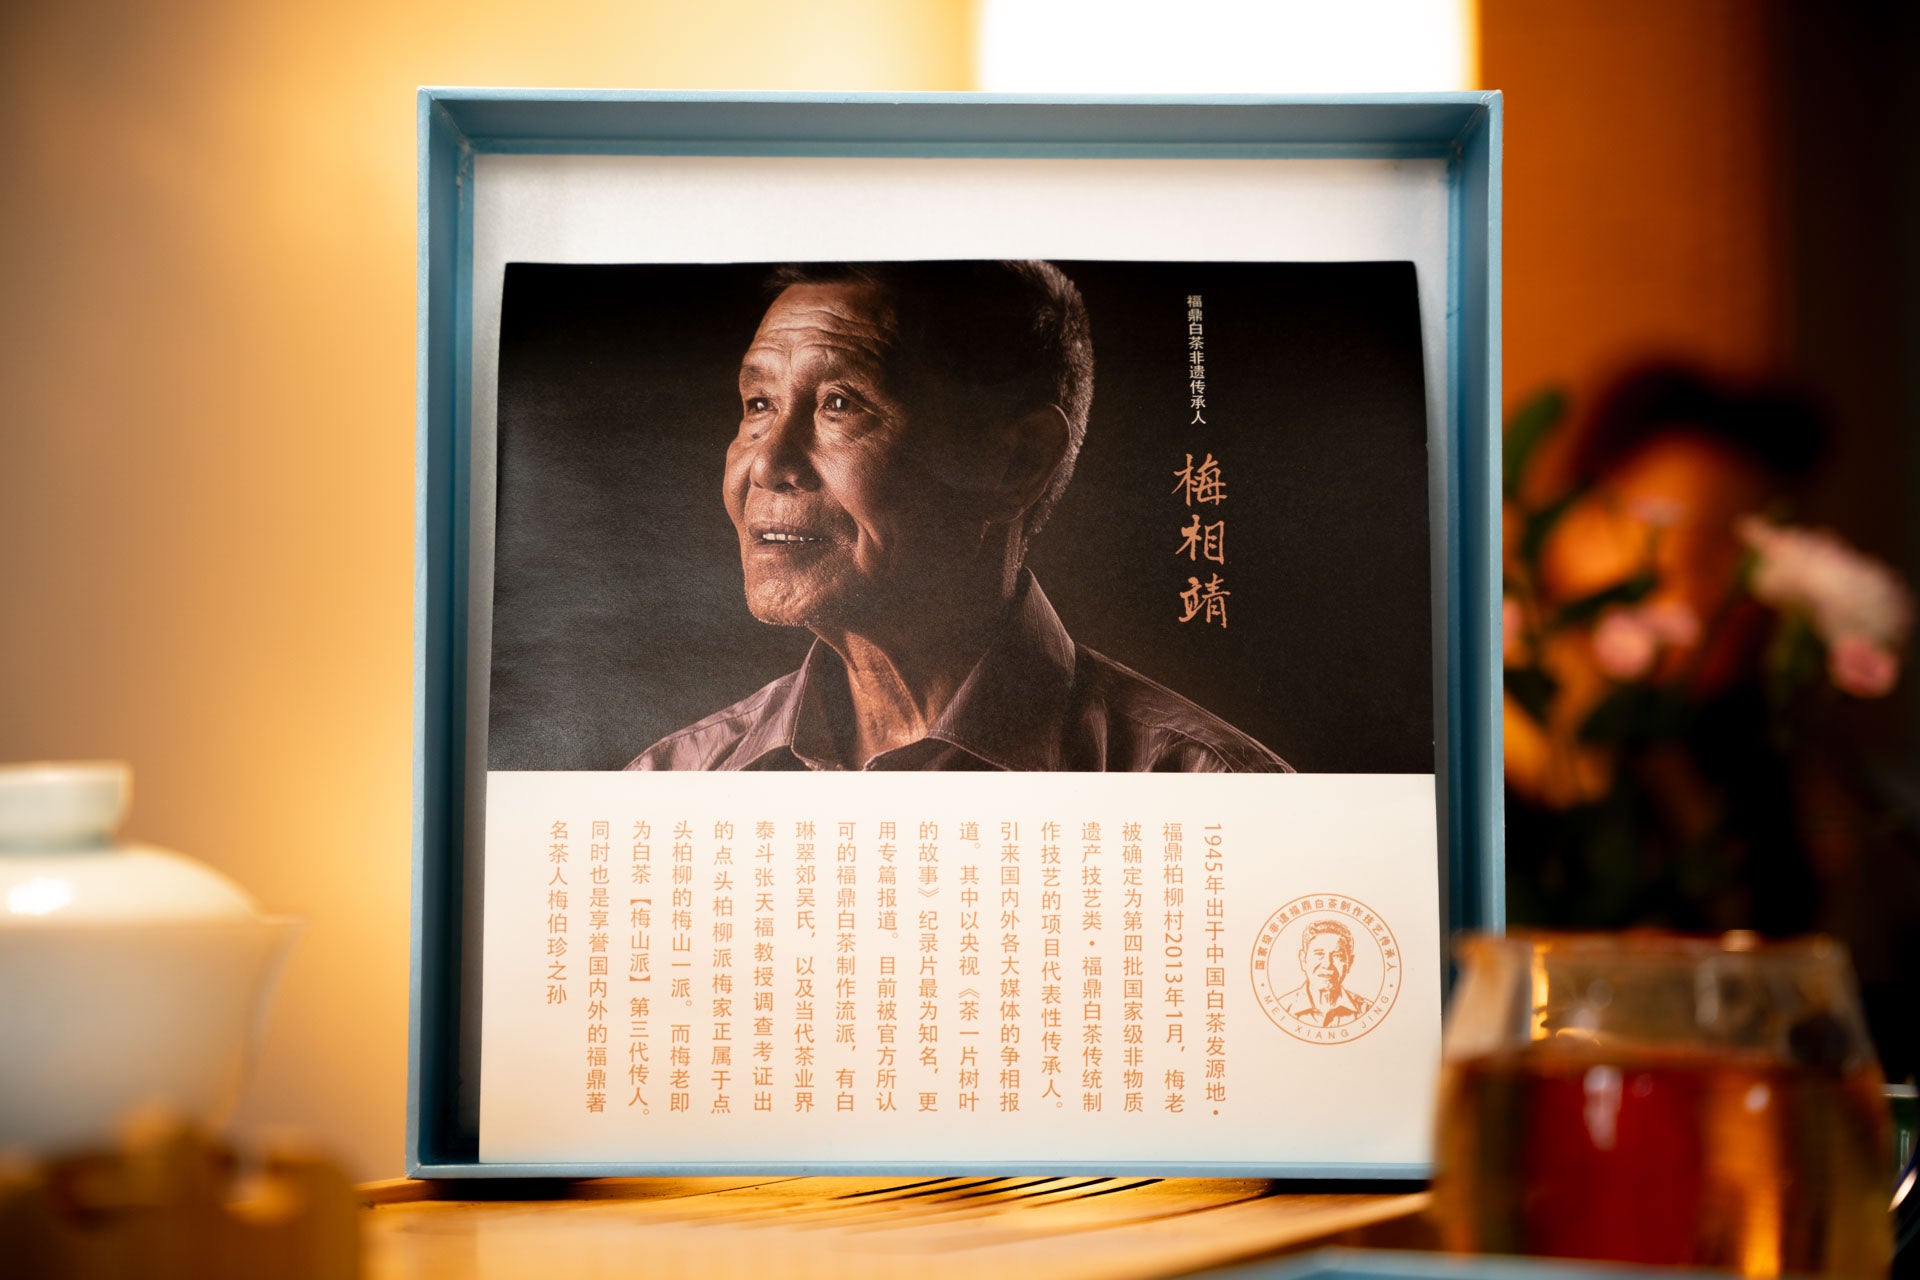 福鼎白茶非遗传承人
梅相靖
国家级非遗福鼎白茶制作技艺传承人
MEI XIANG JING
1945年出于中国白茶发源地·
福鼎柏柳村2013年1月，梅老
被确定为第四批国家级非物质
遗产技艺类·福鼎白茶传统制
作技艺的项目代表性传承人。
引来国内外各大媒体的争相报
道。其中以央视《茶一片树叶
的故事》纪录片最为知名，更
用专篇报道。目前被官方所认
可的福鼎白茶制作流派，有白
琳翠郊吴氏，以及当代茶业界
泰斗张天福教授调查考证出
的点头柏柳派梅家正属于点
头柏柳的梅山一派。而梅老即
为白茶【梅山派】第三代传人。
同时也是享誉国内外的福鼎著
名茶人梅伯珍之孙